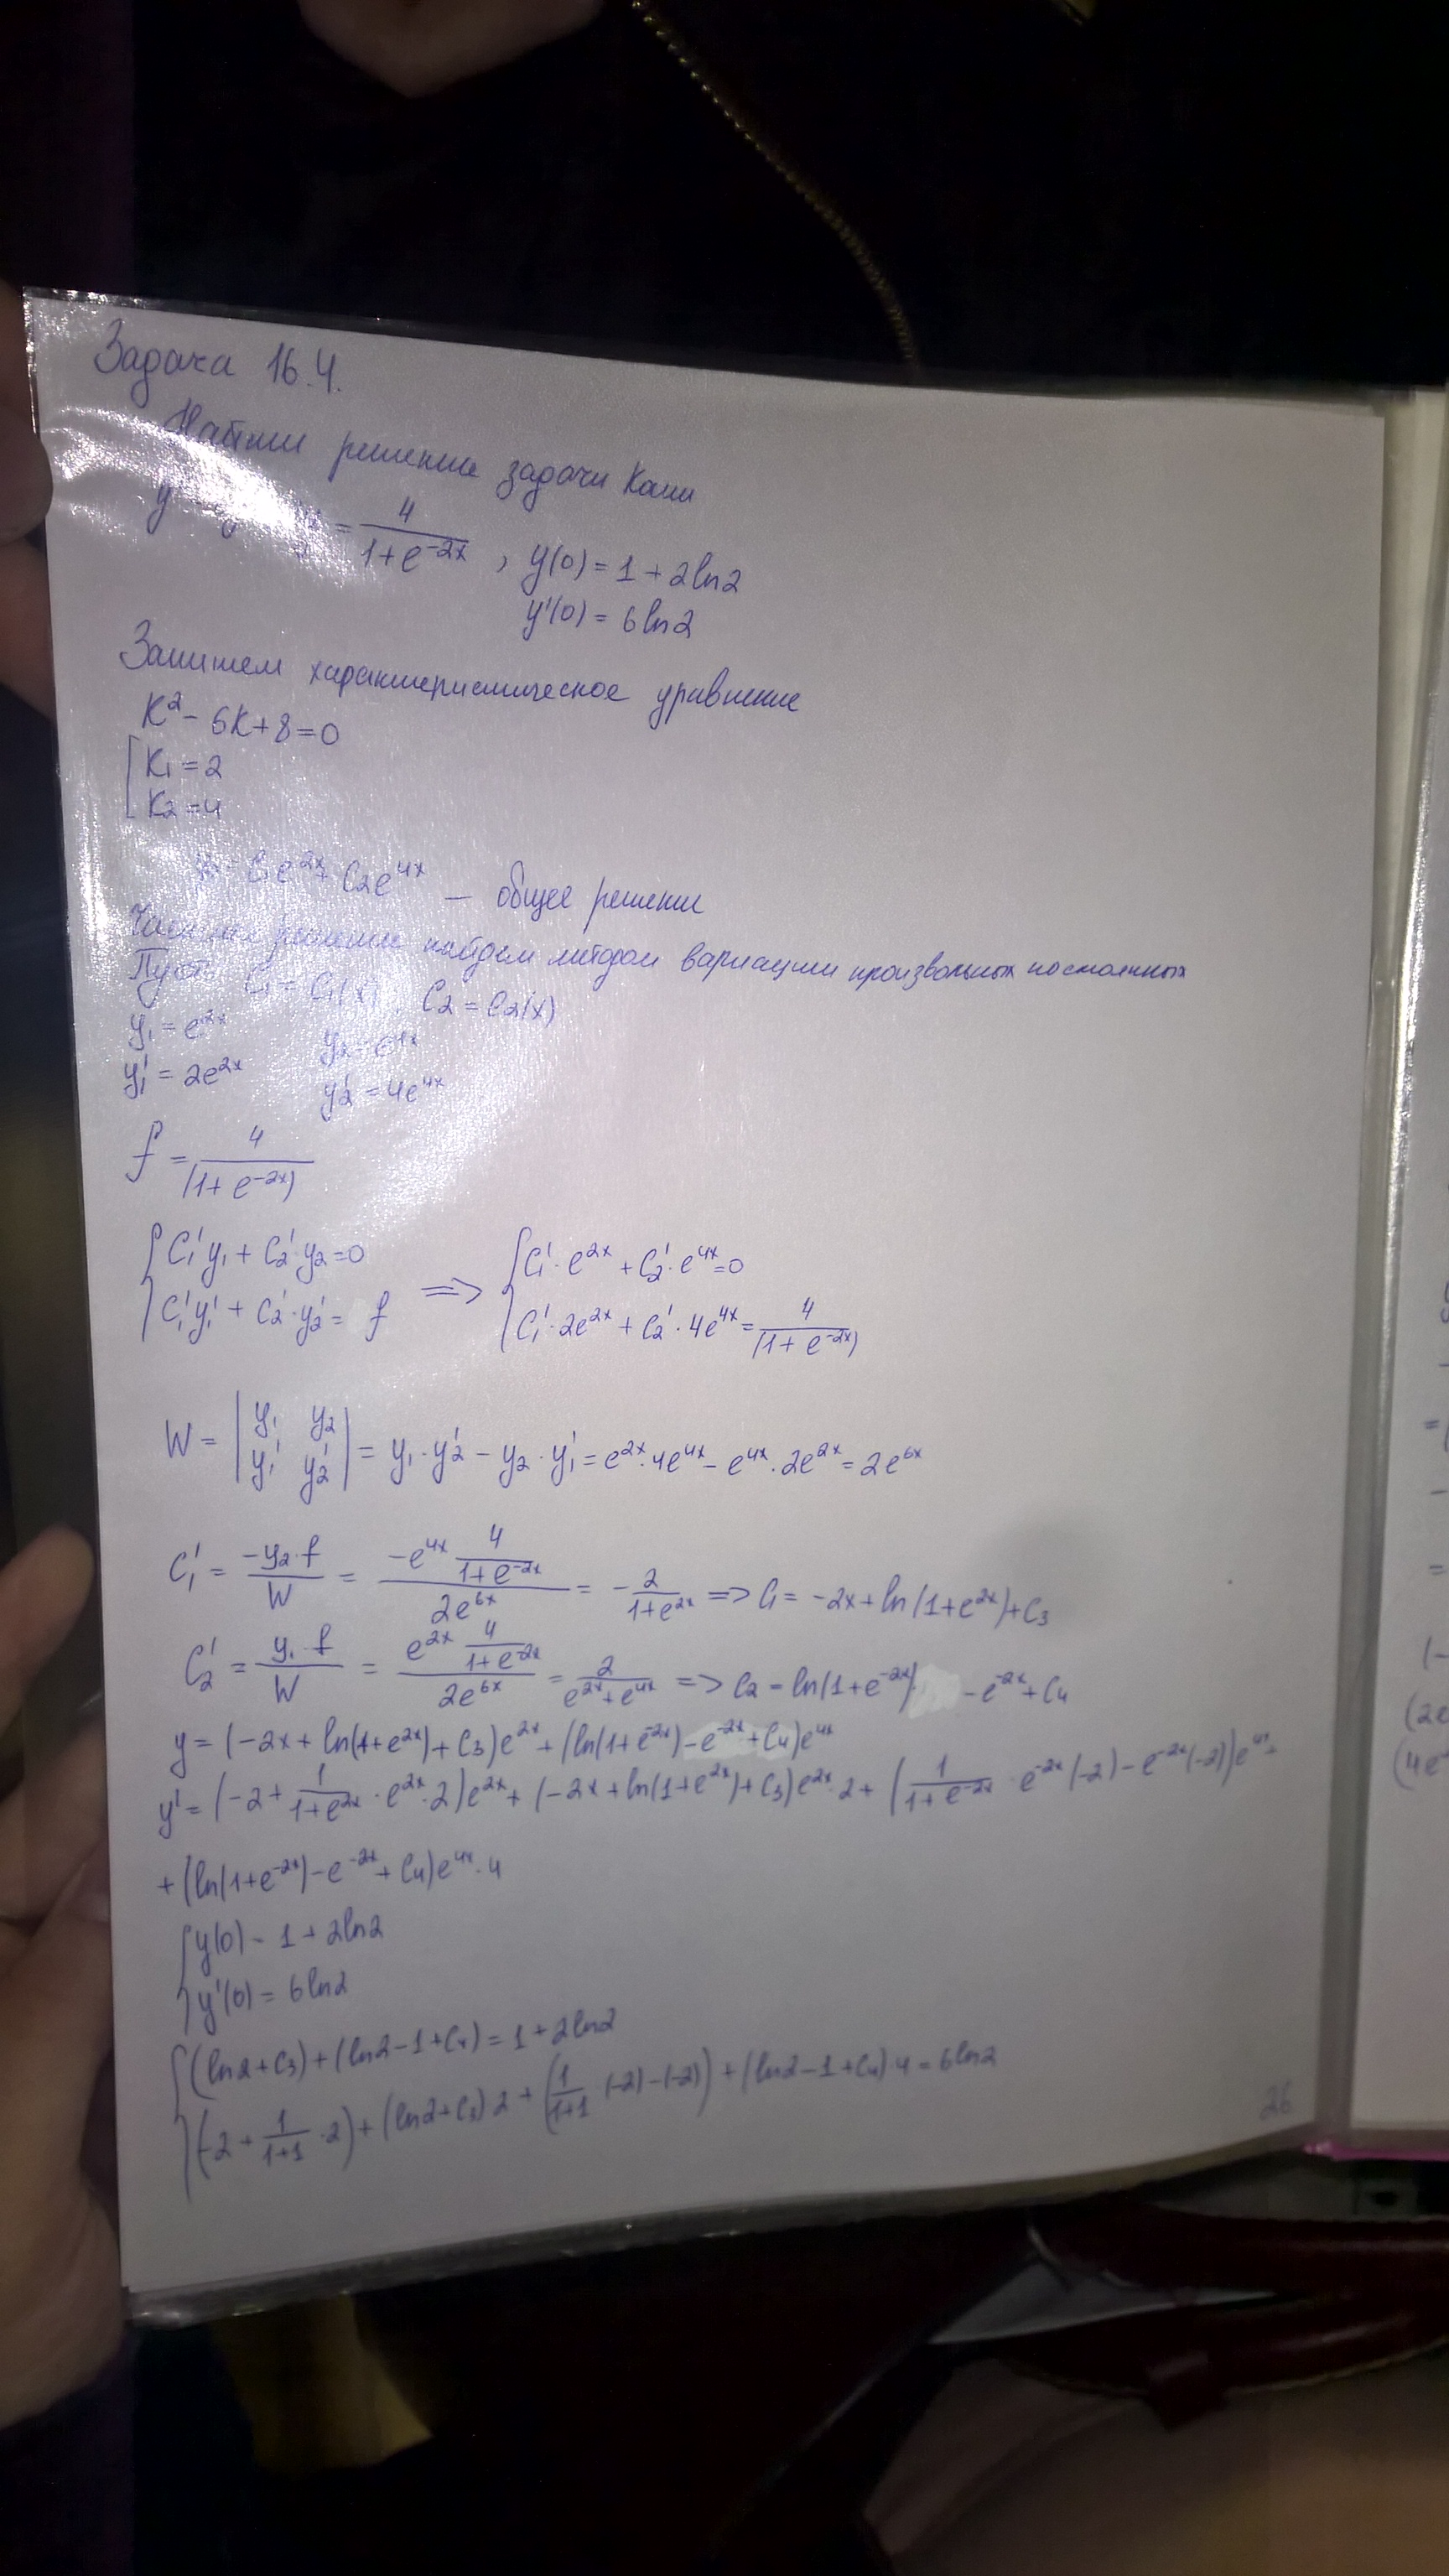 Задача 16.4.
Найти решение задачи Коши
y = 4/(1+e^(-2x)) , y(0) = 1 + 2ln2
y'(0) = 6ln2
Запишем характеристическое уравнение
K² - 6K + 8 = 0
[ K₁ = 2
K₂ = 4
C₁e^(2x) + C₂e^(4x) — общее решение
Частное решение найдем методом вариации произвольных постоянных
Пусть C₁ = C₁(x), C₂ = C₂(x)
y₁ = e^(2x) y₂ = e^(4x)
y₁' = 2e^(2x) y₂' = 4e^(4x)
f = 4/(1+e^(-2x))
{ C₁'y₁ + C₂'·y₂ = 0 => { C₁'·e^(2x) + C₂'·e^(4x) = 0
C₁'y₁' + C₂'·y₂' = f C₁'·2e^(2x) + C₂'·4e^(4x) = 4/(1+e^(-2x))
W = | y₁ y₂ ; y₁' y₂' | = y₁·y₂' - y₂·y₁' = e^(2x)·4e^(4x) - e^(4x)·2e^(2x) = 2e^(6x)
C₁' = (-y₂·f)/W = (-e^(4x) 4/(1+e^(-2x)))/(2e^(6x)) = - 2/(1+e^(2x)) => C₁ = -2x + ln(1+e^(2x)) + C₃
C₂' = (y₁·f)/W = (e^(2x) 4/(1+e^(-2x)))/(2e^(6x)) = 2/(e^(2x)+e^(4x)) => C₂ = ln(1+e^(-2x)) - e^(-2x) + C₄
y = (-2x + ln(1+e^(2x)) + C₃)e^(2x) + (ln(1+e^(-2x)) - e^(-2x) + C₄)e^(4x)
y' = (-2 + 1/(1+e^(2x)) · e^(2x)·2)e^(2x) + (-2x + ln(1+e^(2x)) + C₃)e^(2x)·2 + (1/(1+e^(-2x)) · e^(-2x)(-2) - e^(-2x)(-2))e^(4x) +
+ (ln(1+e^(-2x)) - e^(-2x) + C₄)e^(4x)·4
{ y(0) = 1 + 2ln2
y'(0) = 6ln2
{ (ln2 + C₃) + (ln2 - 1 + C₄) = 1 + 2ln2
(-2 + 1/(1+1) ·2) + (ln2 + C₃)·2 + (1/(1+1) ·(-2) - (-2)) + (ln2 - 1 + C₄)·4 = 6ln2
26